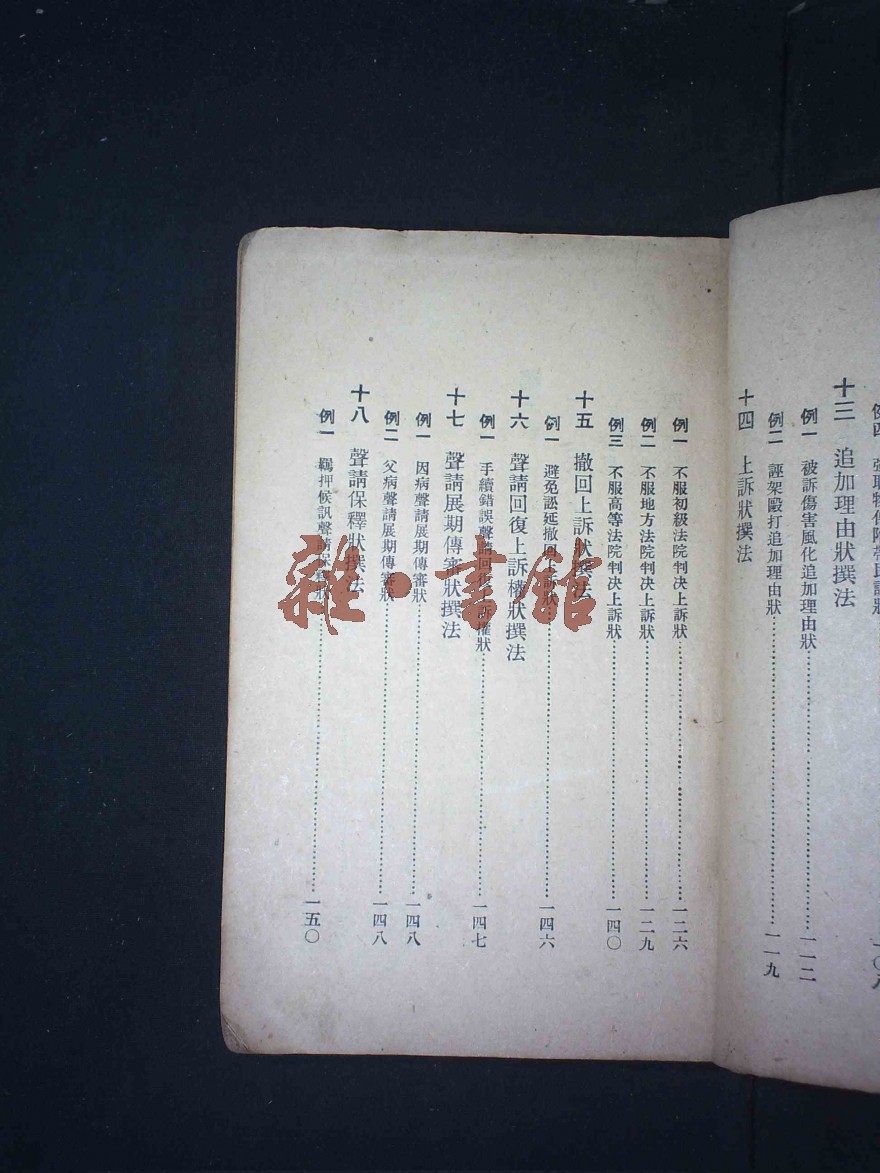 十三　追加理由狀撰法
例一　被訴傷害風化追加理由狀……一一二
例二　誣架毆打追加理由狀……一一九
十四　上訴狀撰法
例一　不服初級法院判決上訴狀……一二六
例二　不服地方法院判決上訴狀……一二九
例三　不服高等法院判決上訴狀……一四〇
十五　撤回上訴狀撰法
例一　避免訟延撤回上訴狀……一四六
十六　聲請回復上訴權狀撰法
例一　手續錯誤聲請回復上訴權狀……一四七
十七　聲請展期傳審狀撰法
例一　因病聲請展期傳審狀……一四八
例二　父病聲請展期傳審狀……一四八
十八　聲請保釋狀撰法
例一　羈押候訊聲請保釋狀……一五〇
雜·書館